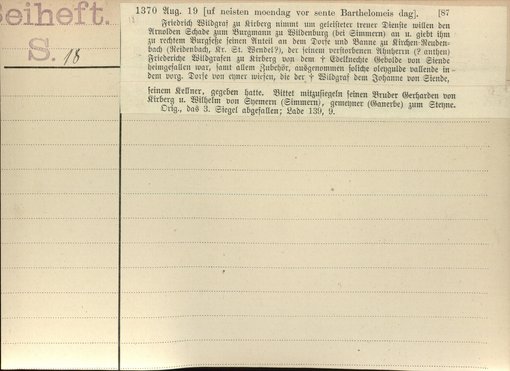 Beiheft.
S. 18
1370 Aug. 19 [uf neisten moendag vor sente Bartholomeis dag]. [87
Friedrich Wildgraf zu Kirberg nimmt um geleisteter treuer Dienste willen den
Arnolden Schade zum Burgmann zu Wildenburg (bei Simmern) an u. giebt ihm
zu rechtem Burgsesse seinen Anteil an dem Dorfe und Banne zu Kirchen-Reuden-
bach (Reidenbach, Kr. St. Wendel?), der seinem verstorbenen Ahnherrn (? anthen)
Friederiche Wildgrafen zu Kirberg von dem † Edelknechte Gebolde von Siende
heimgefallen war, samt allem Zubehör, ausgenommen soliche oleygulde vallende in
dem vorg. Dorfe von eyner wiesen, die der † Wildgraf dem Johanne von Siende,
seinem Kellner, gegeben hatte. Bittet mitzusiegeln seinen Bruder Gerharden von
Kirberg u. Wilhelm von Symern (Simmern), gemeyner (Ganerbe) zum Steyne.
Orig., das 3. Siegel abgefallen; Lade 139, 9.